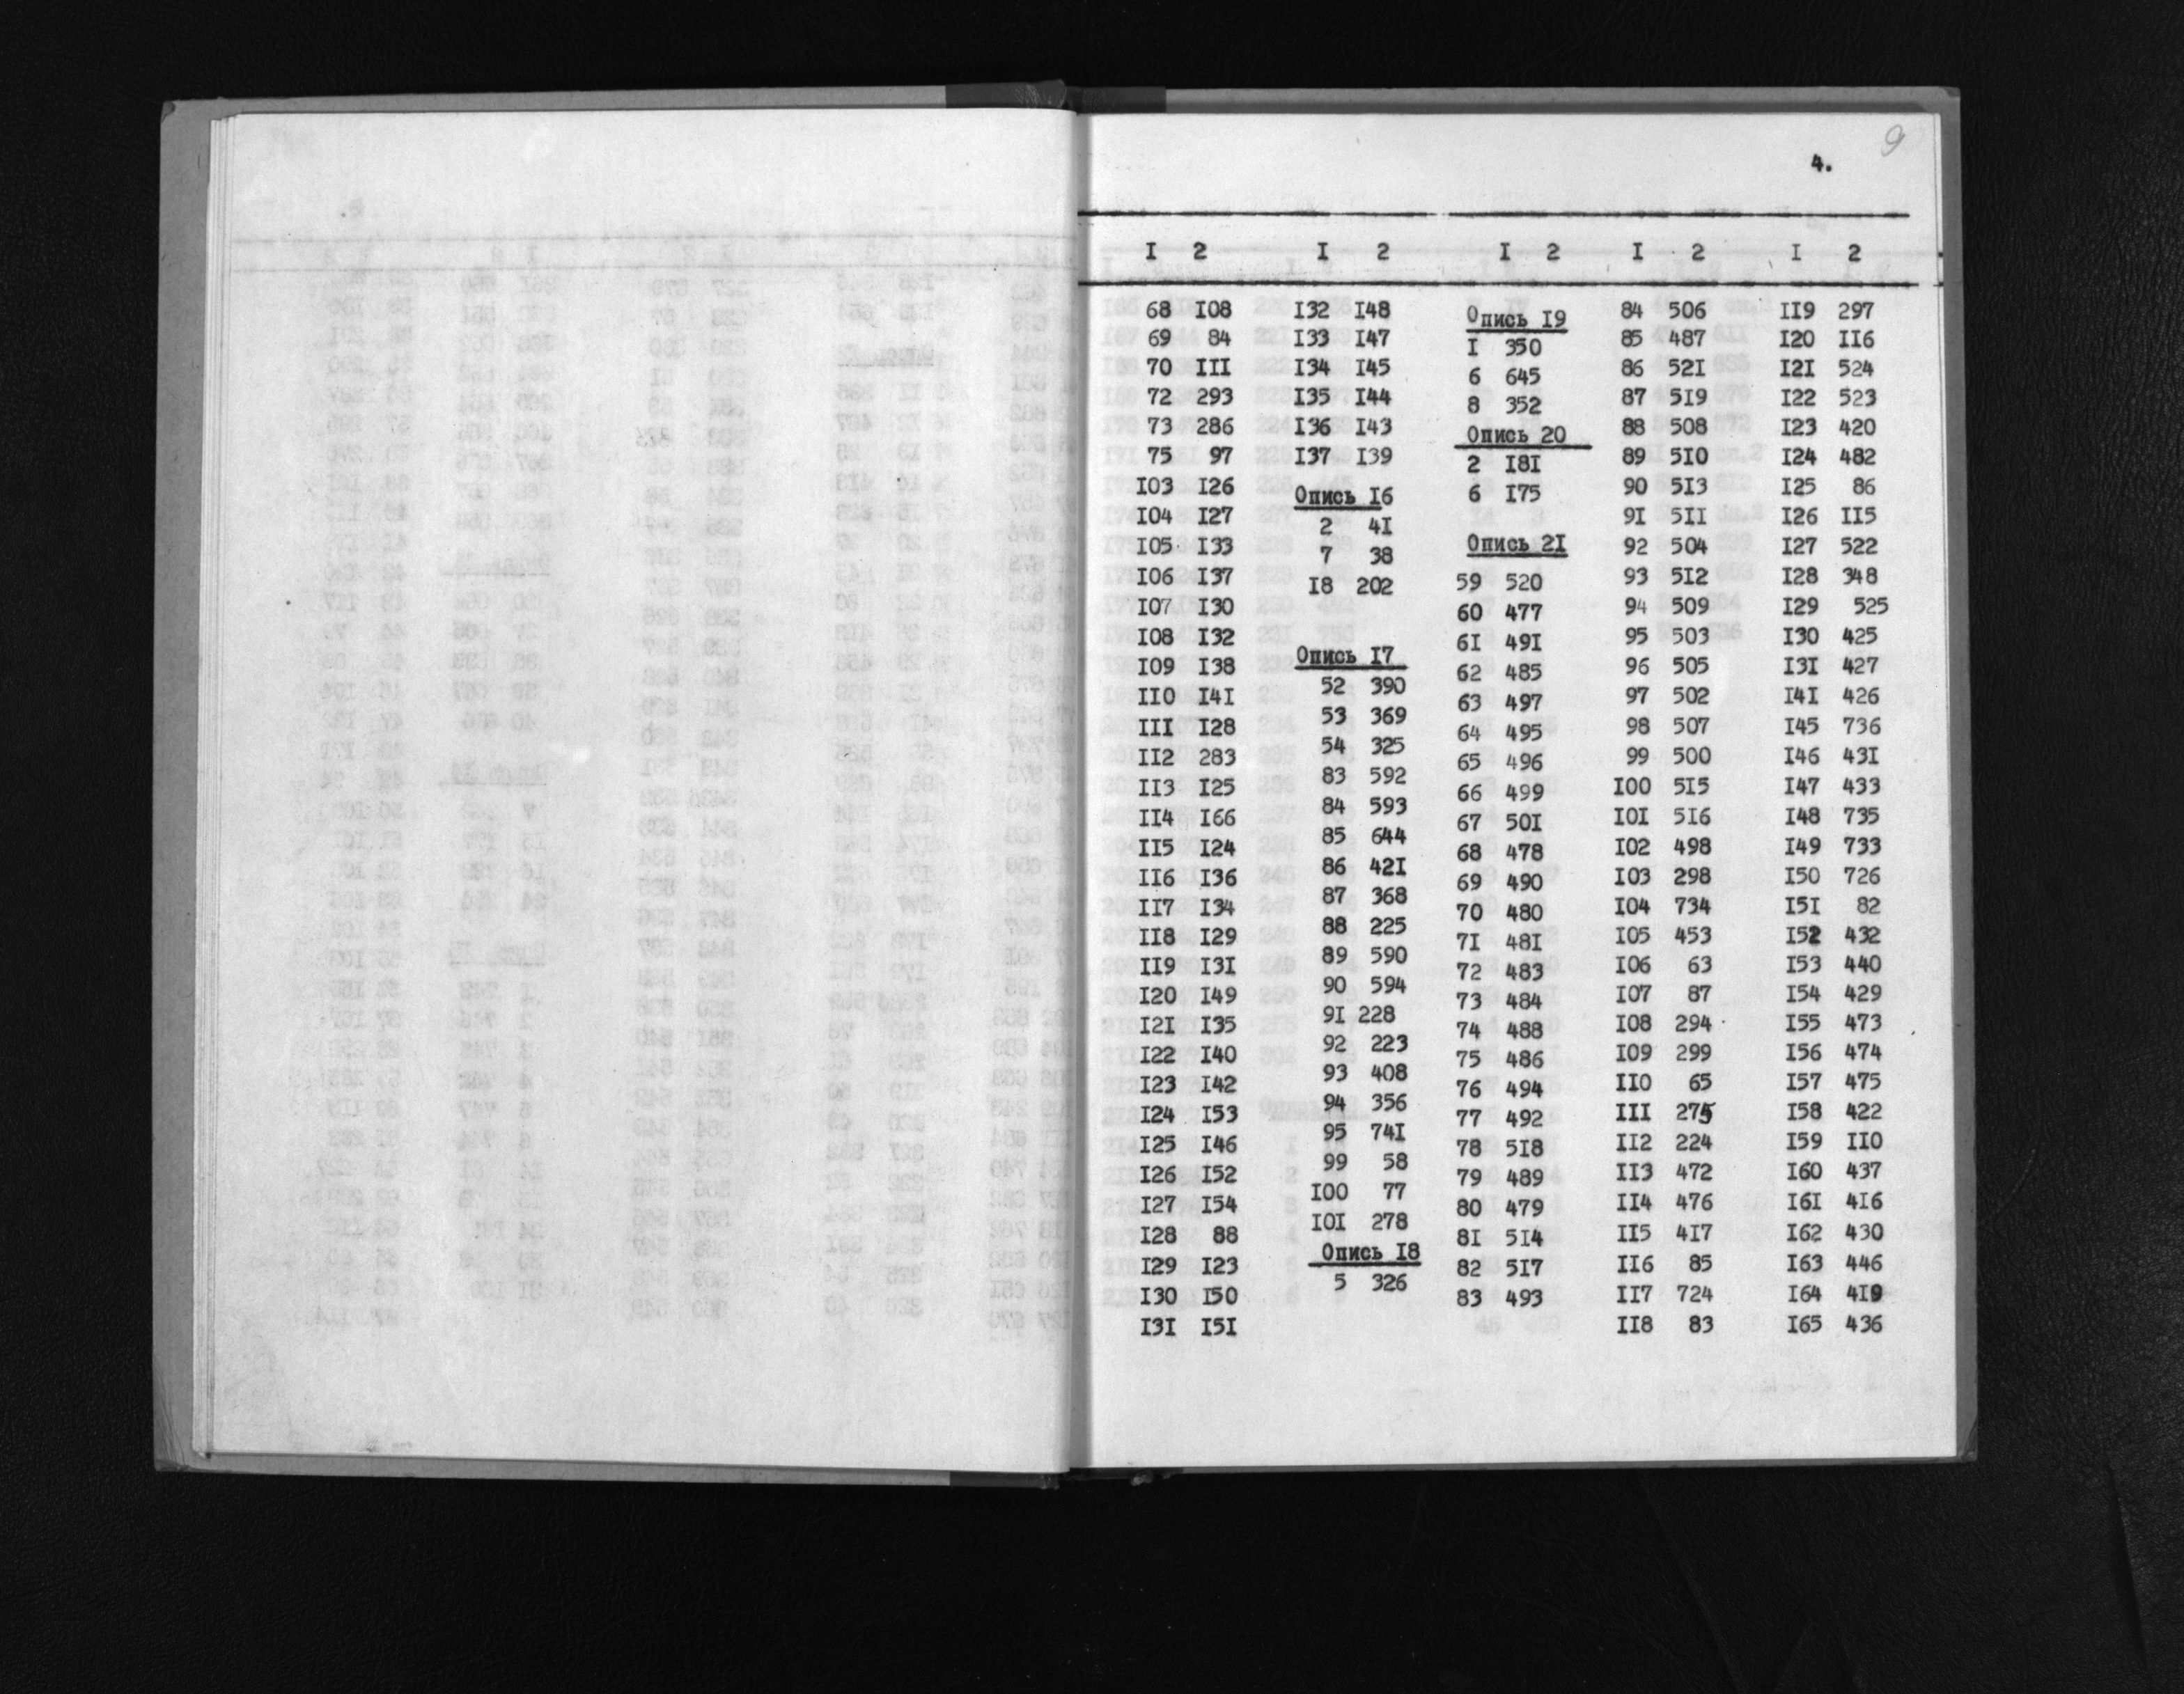 9
4.
I 2
68 I08
69 84
70 III
72 293
73 286
75 97
I03 I26
I04 I27
I05 I33
I06 I37
I07 I30
I08 I32
I09 I38
II0 I4I
III I28
II2 283
II3 I25
II4 I66
II5 I24
II6 I36
II7 I34
II8 I29
II9 I3I
I20 I49
I2I I35
I22 I40
I23 I42
I24 I53
I25 I46
I26 I52
I27 I54
I28 88
I29 I23
I30 I50
I3I I5I
I 2
I32 I48
I33 I47
I34 I45
I35 I44
I36 I43
I37 I39
Опись I6
2 4I
7 38
I8 202
Опись I7
52 390
53 369
54 325
83 592
84 593
85 644
86 42I
87 368
88 225
89 590
90 594
9I 228
92 223
93 408
94 356
95 74I
99 58
I00 77
I0I 278
Опись I8
5 326
I 2
Опись I9
I 350
6 645
8 352
Опись 20
2 I8I
6 I75
Опись 2I
59 520
60 477
6I 49I
62 485
63 497
64 495
65 496
66 499
67 50I
68 478
69 490
70 480
7I 48I
72 483
73 484
74 488
75 486
76 494
77 492
78 5I8
79 489
80 479
8I 5I4
82 5I7
83 493
I 2
84 506
85 487
86 52I
87 5I9
88 508
89 5I0
90 5I3
9I 5II
92 504
93 5I2
94 509
95 503
96 505
97 502
98 507
99 500
I00 5I5
I0I 5I6
I02 498
I03 298
I04 734
I05 453
I06 63
I07 87
I08 294
I09 299
II0 65
III 275
II2 224
II3 472
II4 476
II5 4I7
II6 85
II7 724
II8 83
I 2
II9 297
I20 II6
I2I 524
I22 523
I23 420
I24 482
I25 86
I26 II5
I27 522
I28 348
I29 525
I30 425
I3I 427
I4I 426
I45 736
I46 43I
I47 433
I48 735
I49 733
I50 726
I5I 82
I52 432
I53 440
I54 429
I55 473
I56 474
I57 475
I58 422
I59 II0
I60 437
I6I 4I6
I62 430
I63 446
I64 4I9
I65 436